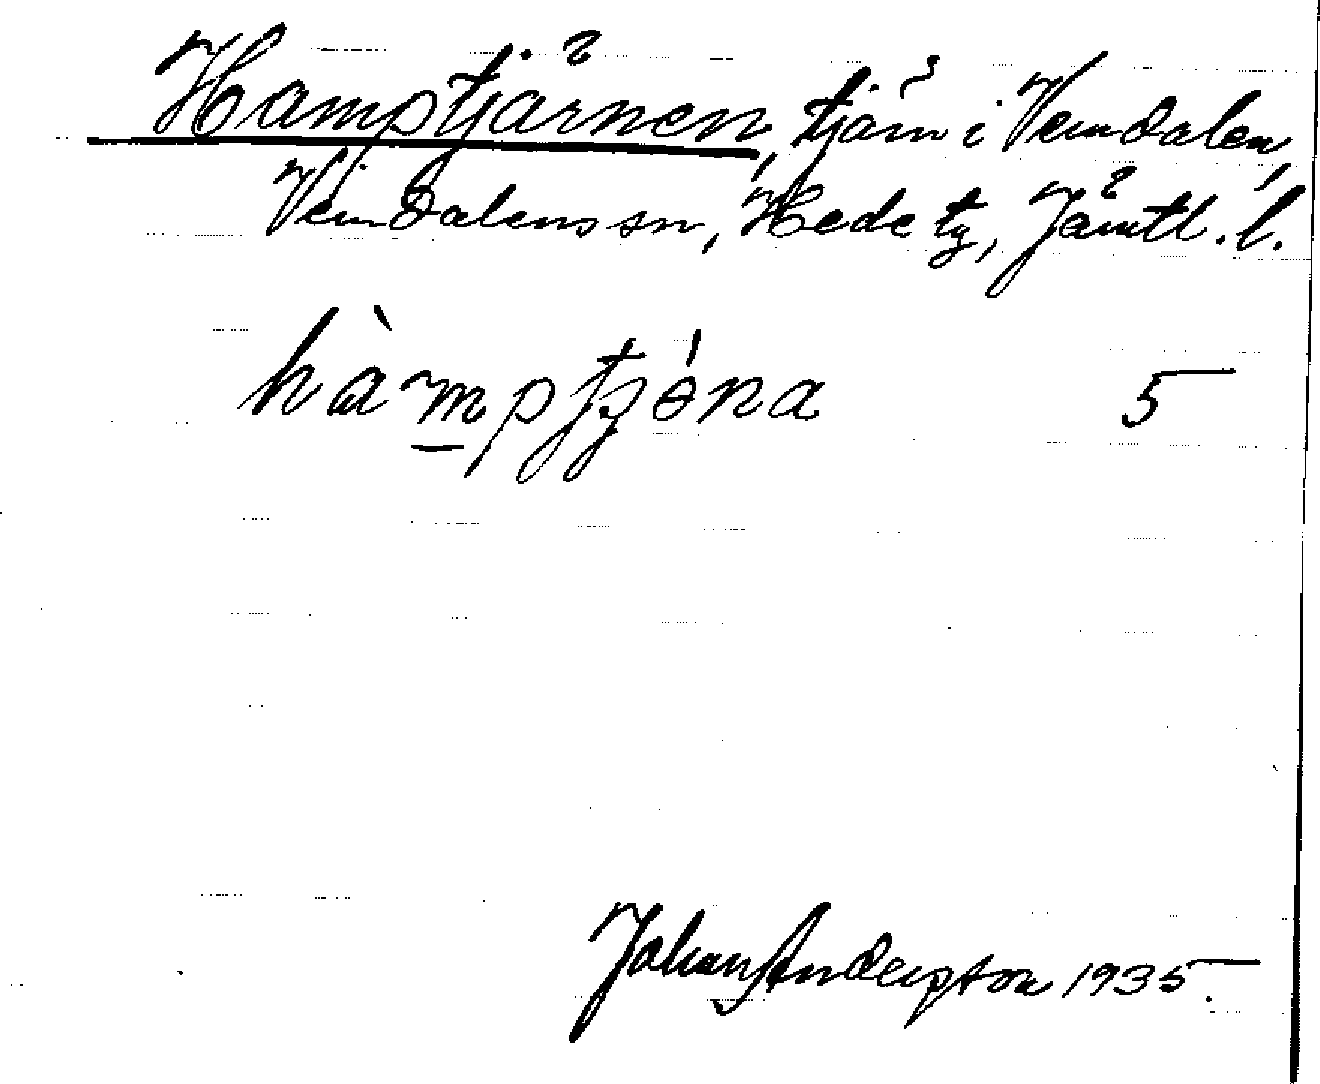 Hamptjärnen, tjärn i Vemdalen,
Vemdalens sn, Hede tg, Jämtl. l.
hàmptjéna 5
Johan Anderson 1935.